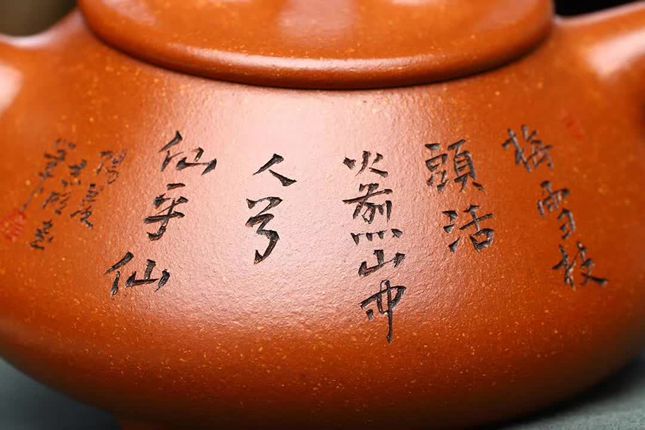 梅雪枝
頭活
火煎山中
人兮
仙乎仙